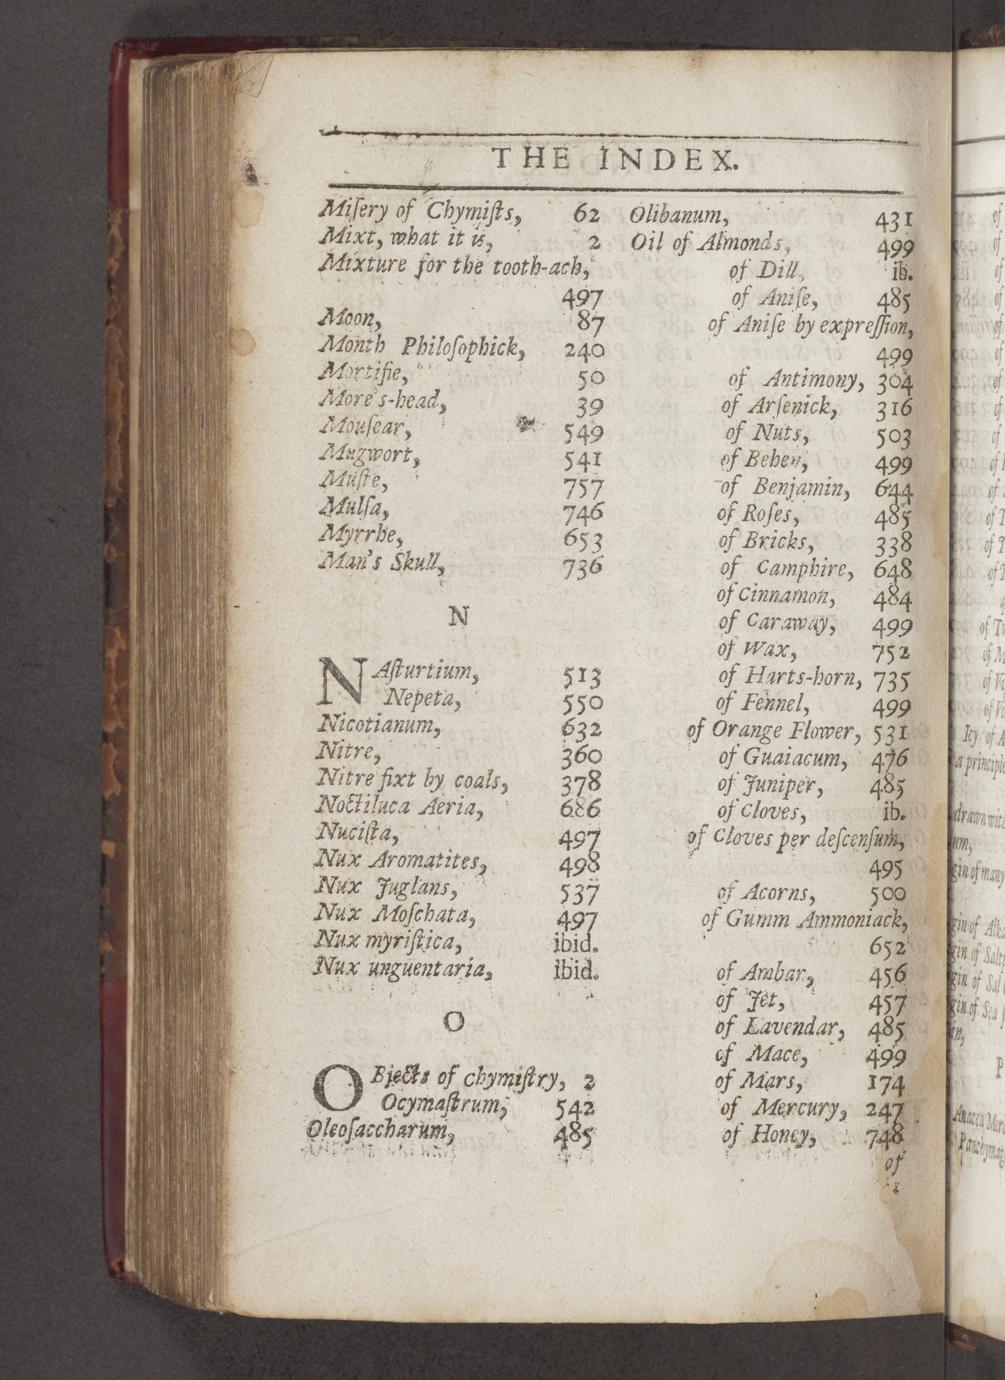 THE INDEX.
Miſery of Chymiſts, 62
Mixt, what it is, 2
Mixture for the tooth-ach,
497
Moon, 87
Month Philoſophick, 240
Mortifie, 50
More's-head, 39
Mouſear, 549
Mugwort, 541
Muſte, 757
Mulſa, 746
Myrrhe, 653
Man's Skull, 736
N
NAſturtium, 513
Nepeta, 550
Nicotianum, 632
Nitre, 360
Nitre fixt by coals, 378
Noctiluca Aeria, 686
Nuciſta, 497
Nux Aromatites, 498
Nux Juglans, 537
Nux Moſchata, 497
Nux myriſtica, ibid.
Nux unguentaria, ibid.
O
OBjects of chymiſtry, 2
Ocymaſtrum, 542
Oleoſaccharum, 485
Olibanum, 431
Oil of Almonds, 499
of Dill, ib.
of Aniſe, 485
of Aniſe by expreſſion,
499
of Antimony, 304
of Arſenick, 316
of Nuts, 503
of Behen, 499
of Benjamin, 644
of Roſes, 485
of Bricks, 338
of Camphire, 648
of Cinnamon, 484
of Caraway, 499
of Wax, 752
of Harts-horn, 735
of Fennel, 499
of Orange Flower, 531
of Guaiacum, 476
of Juniper, 485
of Cloves, ib.
of Cloves per deſcenſum,
495
of Acorns, 500
of Gumm Ammoniack,
652
of Ambar, 456
of Jet, 457
of Lavendar, 485
of Mace, 499
of Mars, 174
of Mercury, 247
of Honey, 748
of